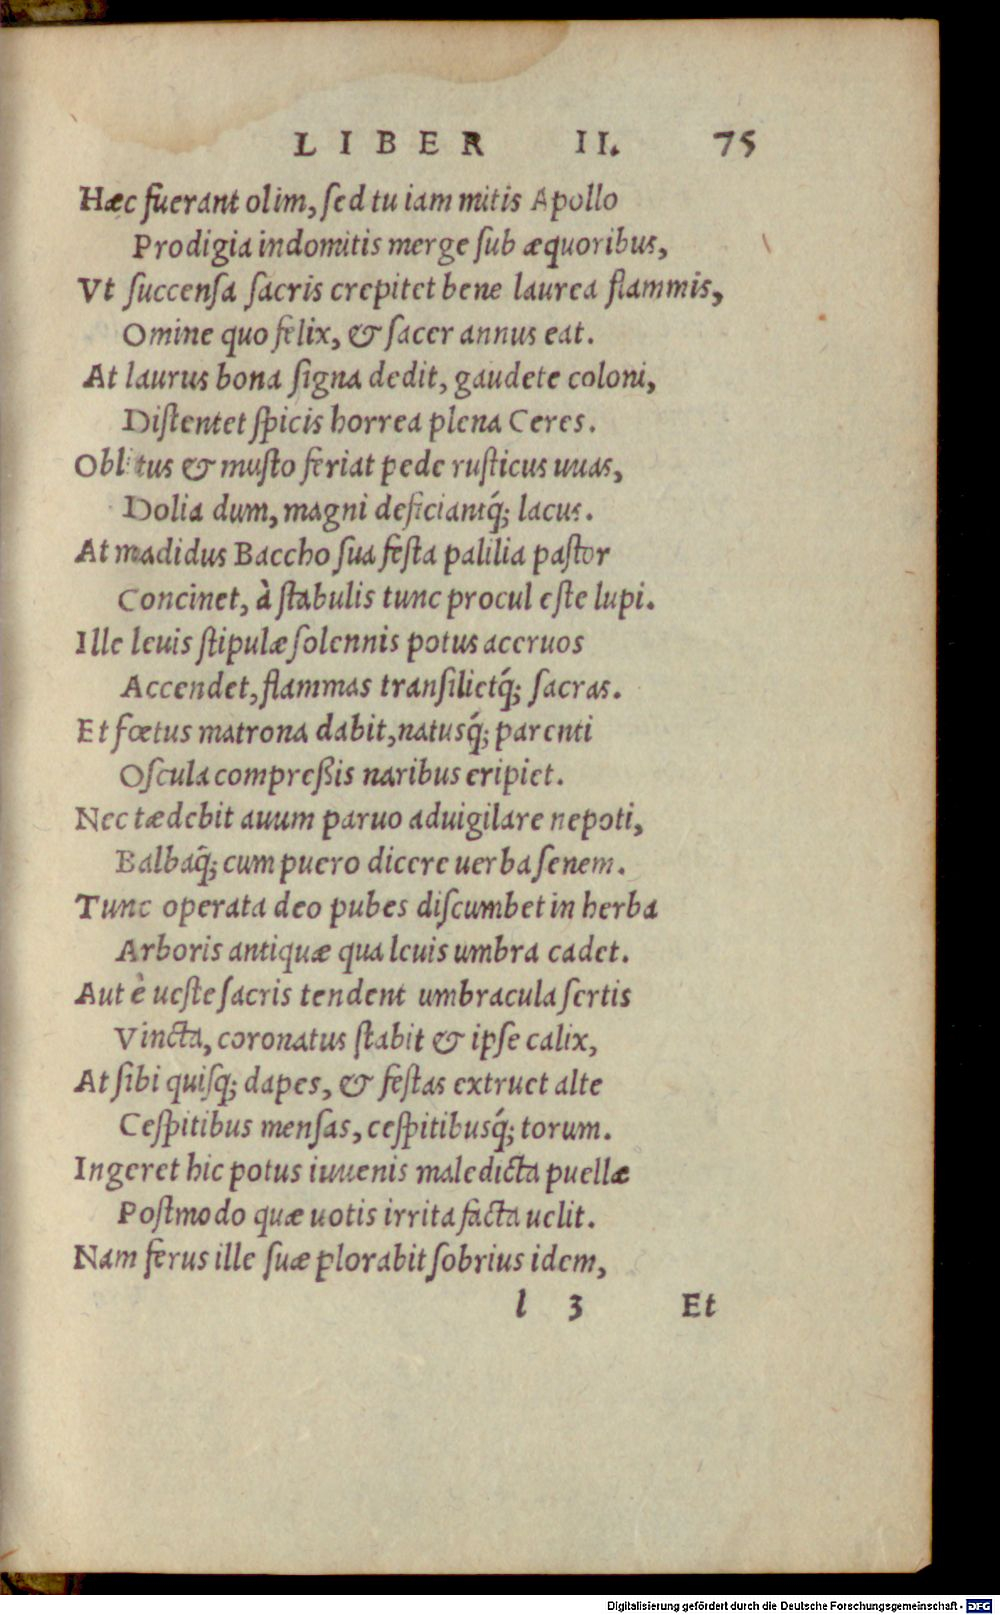 LIBER II. 75
Hæc fuerant olim, sed tu iam mitis Apollo
Prodigia indomitis merge sub æquoribus,
Vt succensa sacris crepitet bene laurea flammis,
Omine quo felix, & sacer annus eat.
At laurus bona signa dedit, gaudete coloni,
Distentet spicis horrea plena Ceres.
Oblitus & musto feriat pede rusticus uuas,
Dolia dum, magni deficiantq́; lacus.
At madidus Baccho sua festa palilia pastor
Concinet, à stabulis tunc procul este lupi.
Ille leuis stipulæ solennis potus aceruos
Accendet, flammas transilietq́; sacras.
Et fœtus matrona dabit, natusq́; parenti
Oscula compreßis naribus eripiet.
Nec tædebit auum paruo aduigilare nepoti,
Balbaq́; cum puero dicere uerba senem.
Tunc operata deo pubes discumbet in herba
Arboris antiquæ qua leuis umbra cadet.
Aut è ueste sacris tendent umbracula sertis
Vincta, coronatus stabit & ipse calix,
At sibi quisq; dapes, & festas extruet alte
Cespitibus mensas, cespitibusq́; torum.
Ingeret hic potus iuuenis maledicta puellæ
Postmodo quæ uotis irrita facta uelit.
Nam ferus ille suæ plorabit sobrius idem,
l 3 Et
Digitalisierung gefördert durch die Deutsche Forschungsgemeinschaft - DFG